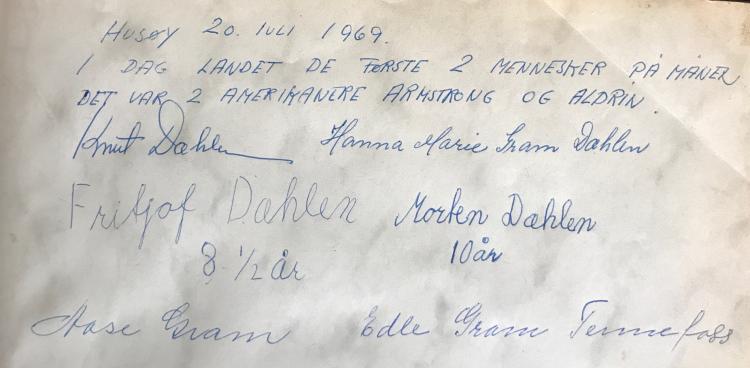 HUSØY 20. JULI 1969.
I DAG LANDET DE FØRSTE 2 MENNESKER PÅ MÅNEN
DET VAR 2 AMERIKANERE ARMSTRONG OG ALDRIN.
Knut Dæhlen Hanna Marie Gram Dæhlen
Fritjof Dæhlen Morten Dæhlen
8 1/2 år 10 år
Aase Gram Edle Gram Tennefoss